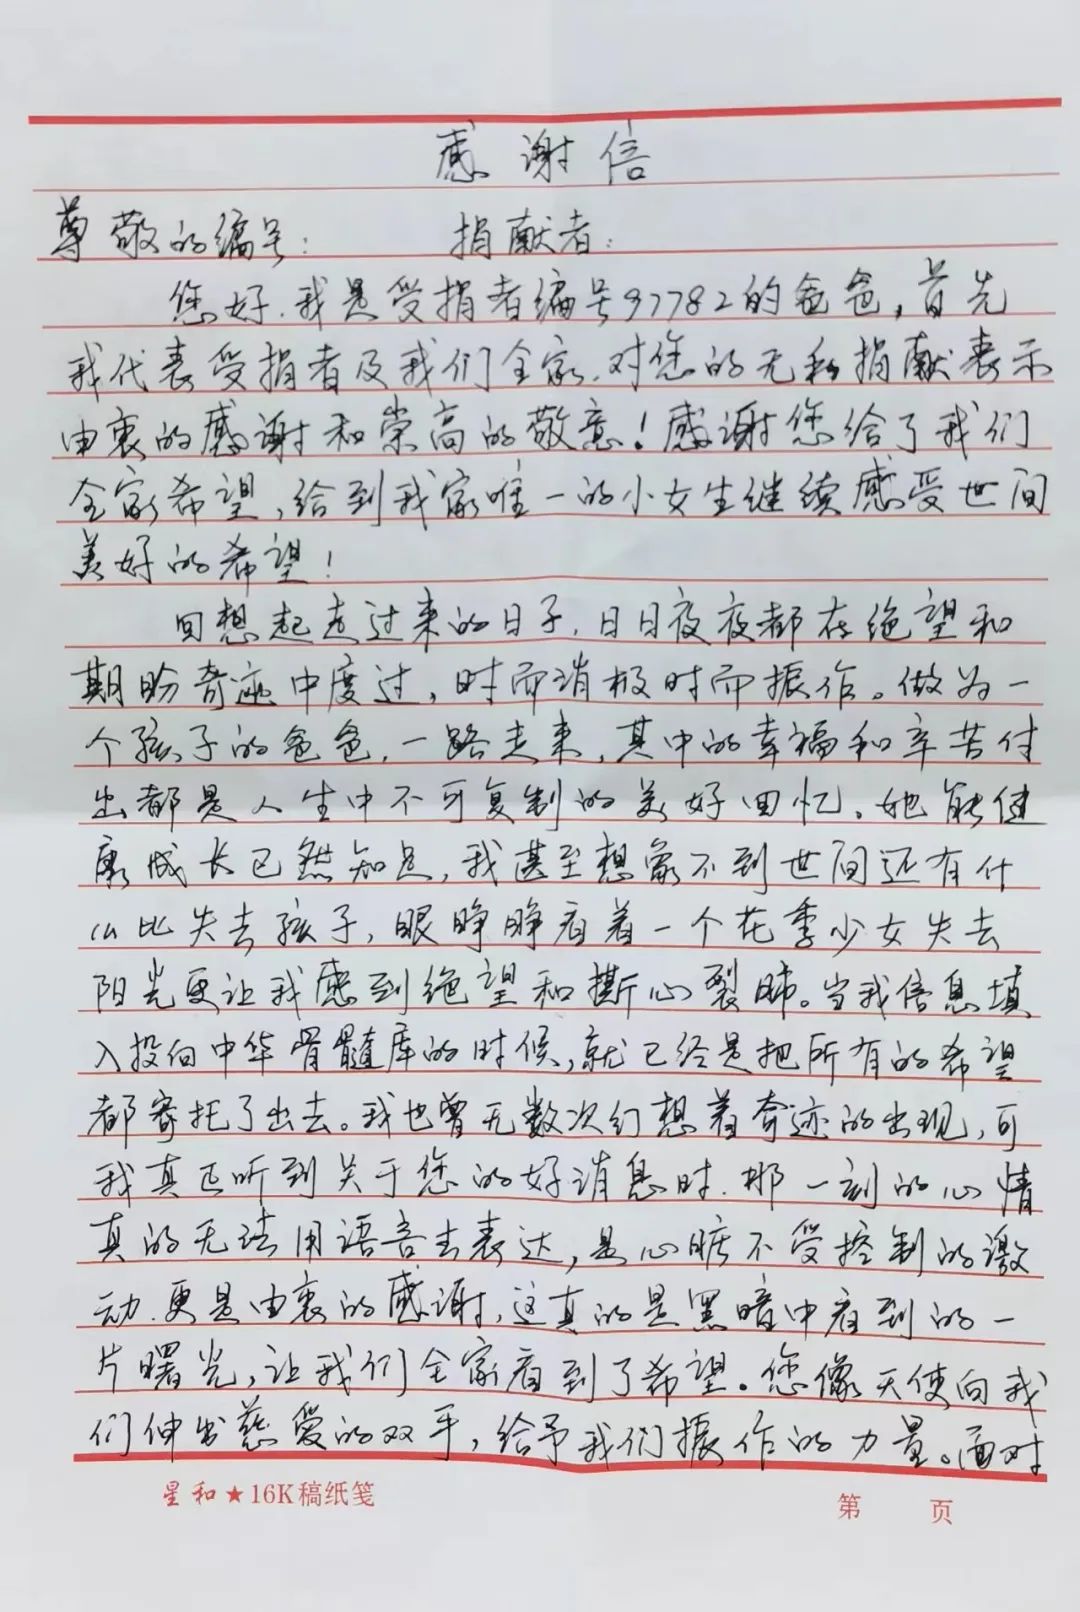 感谢信
尊敬的编号: 捐献者:
您好.我是受捐者编号97782的爸爸,首先
我代表受捐者及我们全家.对您的无私捐献表示
由衷的感谢和崇高的敬意!感谢您给了我们
全家希望,给到我家唯一的小女生继续感受世间
美好的希望!
回想起走过来的日子.日日夜夜都在绝望和
期盼奇迹中度过,时而消极时而振作。做为一
个孩子的爸爸.一路走来,其中的幸福和辛苦付
出都是人生中不可复制的美好回忆。她能健
康成长已然知足,我甚至想象不到世间还有什
么比失去孩子,眼睁睁看着一个花季少女失去
阳光更让我感到绝望和撕心裂肺。当我信息填
入投向中华骨髓库的时候,就已经是把所有的希望
都寄托了出去。我也曾无数次幻想着奇迹的出现,可
我真正听到关于您的好消息时.那一刻的心情
真的无法用语言去表达,是心脏不受控制的激
动.更是由衷的感谢,这真的是黑暗中看到的一
片曙光,让我们全家看到了希望。您像天使向我
们伸出慈爱的双手,给予我们振作的力量。面对
星和★16K稿纸笺 第 页